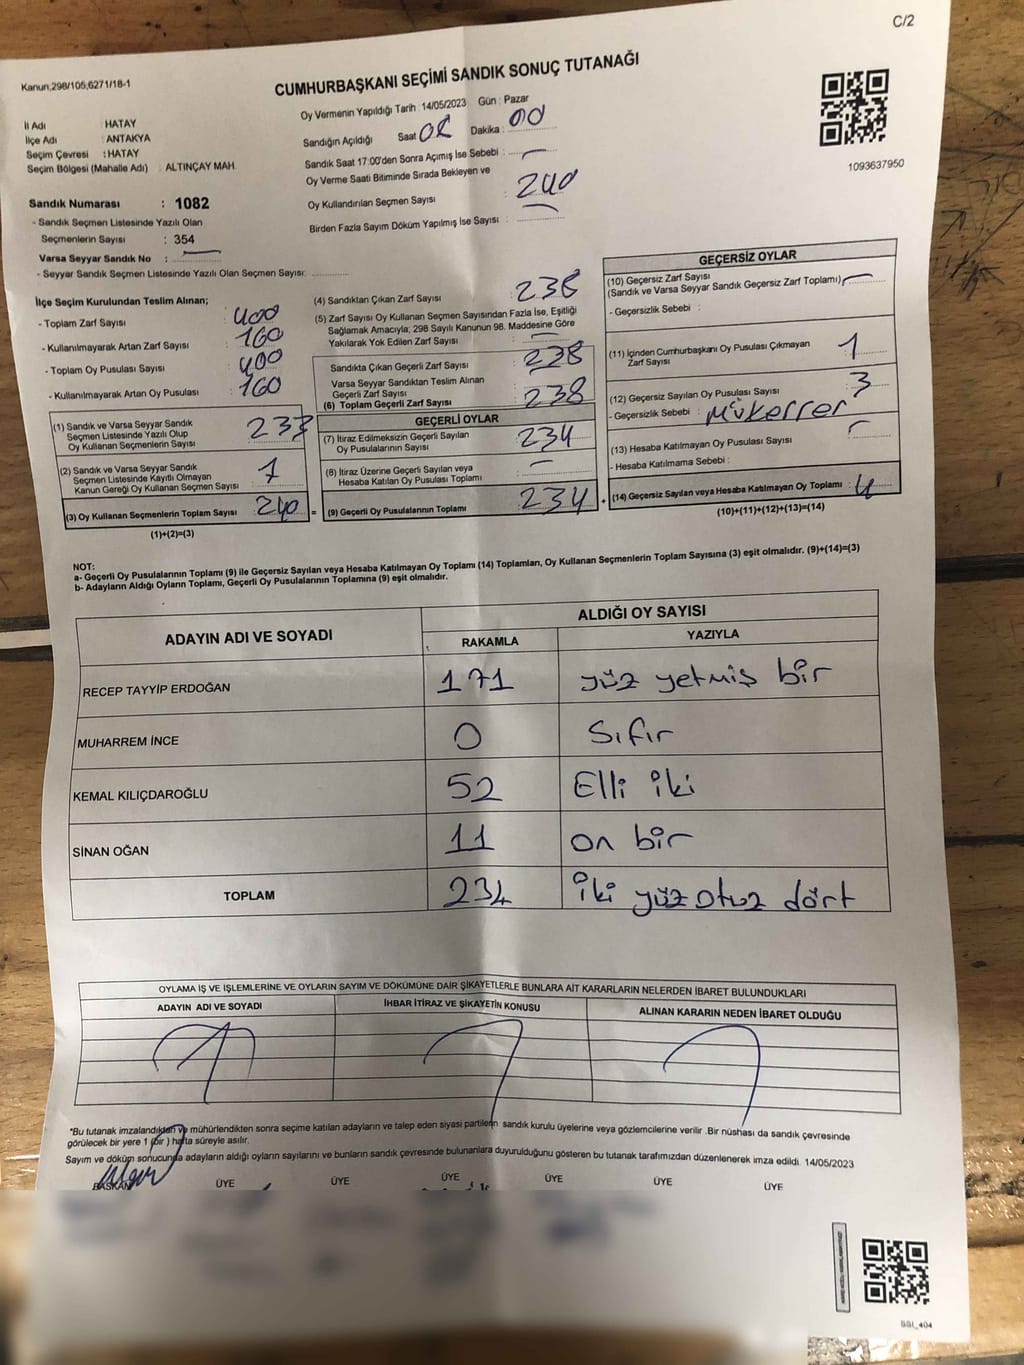 C/2
Kanun;298/105;6271/18-1
CUMHURBAŞKANI SEÇİMİ SANDIK SONUÇ TUTANAĞI
İl Adı : HATAY
İlçe Adı : ANTAKYA
Seçim Çevresi : HATAY
Seçim Bölgesi (Mahalle Adı) : ALTINÇAY MAH.
Oy Vermenin Yapıldığı Tarih : 14/05/2023 Gün : Pazar
Sandığın Açıldığı Saat Dakika : 00
Sandık Saat 17:00'den Sonra Açımış İse Sebebi : —
Oy Verme Saati Bitiminde Sırada Bekleyen ve
Oy Kullandırılan Seçmen Sayısı : 240
Birden Fazla Sayım Döküm Yapılmış İse Sayısı : —
1093637950
Sandık Numarası : 1082
- Sandık Seçmen Listesinde Yazılı Olan
Seçmenlerin Sayısı : 354
Varsa Seyyar Sandık No : —
- Seyyar Sandık Seçmen Listesinde Yazılı Olan Seçmen Sayısı:
İlçe Seçim Kurulundan Teslim Alınan;
- Toplam Zarf Sayısı : 400
- Kullanılmayarak Artan Zarf Sayısı : 160
- Toplam Oy Pusulası Sayısı : 400
- Kullanılmayarak Artan Oy Pusulası : 160
(1) Sandık ve Varsa Seyyar Sandık
Seçmen Listesinde Yazılı Olup
Oy Kullanan Seçmenlerin Sayısı : 233
(2) Sandık ve Varsa Seyyar Sandık
Seçmen Listesinde Kayıtlı Olmayan
Kanun Gereği Oy Kullanan Seçmen Sayısı : 7
(3) Oy Kullanan Seçmenlerin Toplam Sayısı : 240
(1)+(2)=(3)
(4) Sandıktan Çıkan Zarf Sayısı : 238
(5) Zarf Sayısı Oy Kullanan Seçmen Sayısından Fazla İse, Eşitliği
Sağlamak Amacıyla; 298 Sayılı Kanunun 98. Maddesine Göre
Yakılarak Yok Edilen Zarf Sayısı : —
Sandıkta Çıkan Geçerli Zarf Sayısı : 238
Varsa Seyyar Sandıktan Teslim Alınan
Geçerli Zarf Sayısı : —
(6) Toplam Geçerli Zarf Sayısı : 238
GEÇERLİ OYLAR
(7) İtiraz Edilmeksizin Geçerli Sayılan
Oy Pusulalarının Sayısı : 234
(8) İtiraz Üzerine Geçerli Sayılan veya
Hesaba Katılan Oy Pusulası Toplamı : —
= (9) Geçerli Oy Pusulalarının Toplamı : 234
GEÇERSİZ OYLAR
(10) Geçersiz Zarf Sayısı
(Sandık ve Varsa Seyyar Sandık Geçersiz Zarf Toplamı) —
- Geçersizlik Sebebi :
(11) İçinden Cumhurbaşkanı Oy Pusulası Çıkmayan
Zarf Sayısı : 1
(12) Geçersiz Sayılan Oy Pusulası Sayısı : 3
- Geçersizlik Sebebi : Mükerrer
(13) Hesaba Katılmayan Oy Pusulası Sayısı : —
- Hesaba Katılmama Sebebi :
+ (14) Geçersiz Sayılan veya Hesaba Katılmayan Oy Toplamı : 4
(10)+(11)+(12)+(13)=(14)
NOT:
a- Geçerli Oy Pusulalarının Toplamı (9) ile Geçersiz Sayılan veya Hesaba Katılmayan Oy Toplamı (14) Toplamları, Oy Kullanan Seçmenlerin Toplam Sayısına (3) eşit olmalıdır. (9)+(14)=(3)
b- Adayların Aldığı Oyların Toplamı, Geçerli Oy Pusulalarının Toplamına (9) eşit olmalıdır.
ADAYIN ADI VE SOYADI ALDIĞI OY SAYISI
RAKAMLA YAZIYLA
RECEP TAYYİP ERDOĞAN 171 yüz yetmiş bir
MUHARREM İNCE 0 Sıfır
KEMAL KILIÇDAROĞLU 52 Elli iki
SİNAN OĞAN 11 on bir
TOPLAM 234 iki yüz otuz dört
OYLAMA İŞ VE İŞLEMLERİNE VE OYLARIN SAYIM VE DÖKÜMÜNE DAİR ŞİKAYETLERLE BUNLARA AİT KARARLARIN NELERDEN İBARET BULUNDUKLARI
ADAYIN ADI VE SOYADI İHBAR İTİRAZ VE ŞİKAYETİN KONUSU ALINAN KARARIN NEDEN İBARET OLDUĞU
*Bu tutanak imzalandıktan ve mühürlendikten sonra seçime katılan adayların ve talep eden siyasi partilerin sandık kurulu üyelerine veya gözlemcilerine verilir .Bir nüshası da sandık çevresinde
görülecek bir yere 1 (bir ) hafta süreyle asılır.
Sayım ve döküm sonucunda adayların aldığı oyların sayılarını ve bunların sandık çevresinde bulunanlara duyurulduğunu gösteren bu tutanak tarafımızdan düzenlenerek imza edildi. 14/05/2023
BAŞKAN ÜYE ÜYE ÜYE ÜYE ÜYE ÜYE